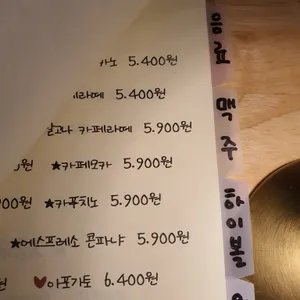 카노 5.400원
라떼 5.400원
달고나 카페라떼 5.900원
원 ★카페모카 5.900원
900원 ★카푸치노 5.900원
★에스프레소 콘파냐 5.900원
원 ♥아포가토 6.400원
음료
맥주
하이볼